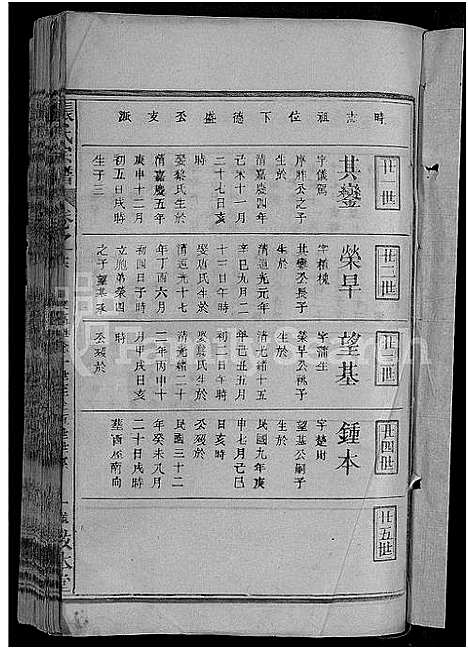 時志祖位下德盛丕支派
廿一世
其鑾
字儀駕
序胙公之子
生於
清嘉慶四年
己未十一月
二十七日亥
時
娶黎氏生於
清嘉慶五年
庚申十二月
初五日戌時
生子三
廿二世
榮早
字槐槐
其鑾公長子
生於
清道光元年
辛巳九月二
十三日午時
娶唐氏生於
清道光十七
年丁酉六月
初四日子時
立胞弟榮四
之子望基承
廿三世
望基
字蒲生
榮早公祧子
生於
清光緒十五
年己丑五月
初七日午時
娶黎氏生於
清光緒二十
二年丙申十
月甲戌日亥
時
公歿於
廿四世
鍾本
字楚財
望基公嗣子
生於
民國九年庚
申七月己巳
日亥時
公歿於
民國三十二
年癸未八月
二十日戌時
葬酉
南向
廿五世
張氏宗譜
敬本堂